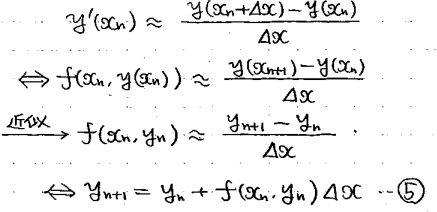 y'(xn) ≈ y(xn+Δx)-y(xn) / Δx
⇔ f(xn, y(xn)) ≈ y(xn+1)-y(xn) / Δx
近似→ f(xn, yn) ≈ yn+1 - yn / Δx .
⇔ yn+1 = yn + f(xn, yn)Δx --⑤